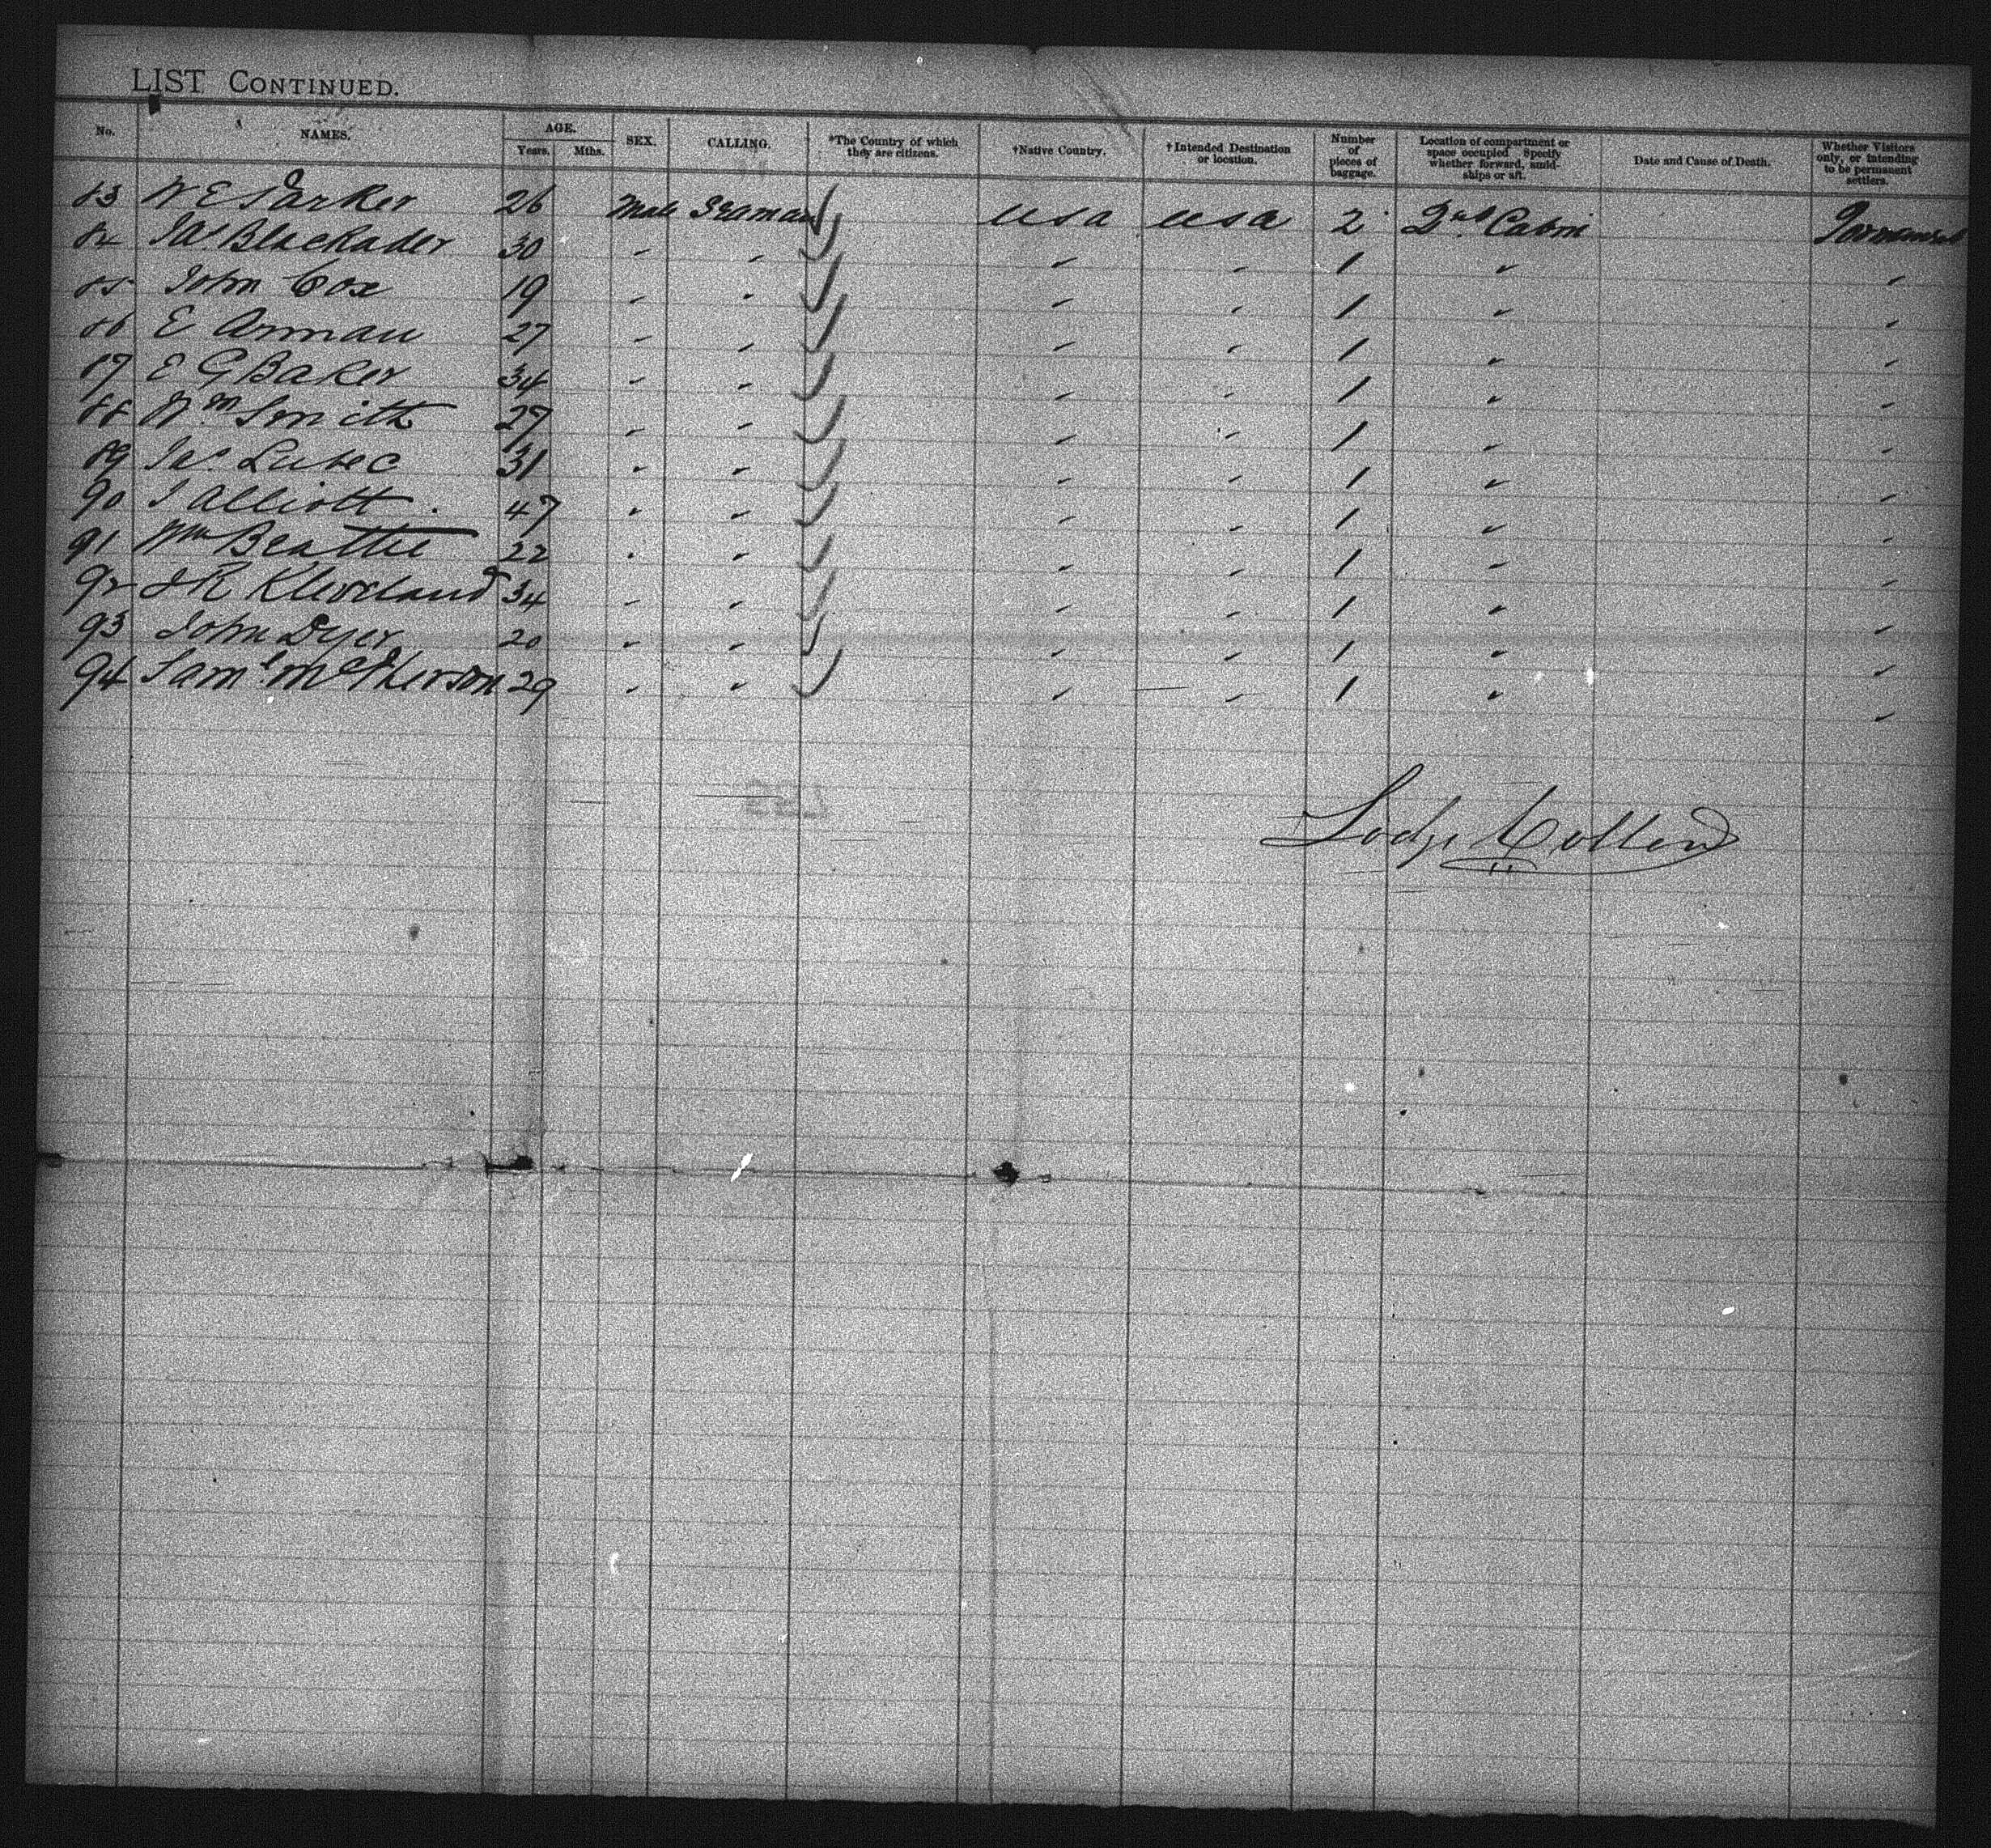 LIST CONTINUED.
No. NAMES. AGE. Years. Mths. SEX. CALLING. *The Country of which they are citizens. †Native Country. †Intended Destination or location. Number of pieces of baggage. Location of compartment or space occupied Specify whether forward, amidships or aft. Date and Cause of Death. Whether Visitors only, or intending to be permanent settlers.
83 W E Parker 26 Male Seaman usa usa 2 2nd Cabin Permanent
84 Jas Blackader 30 1
85 John Cox 19 1
86 E Arman 27 1
87 E G Baker 34 1
88 Wm Smith 27 1
89 Jas 31 1
90 J Alliott 47 1
91 Wm Beattie 22 1
92 J R Kleveland 34 1
93 John Dyer 20 1
94 Saml McPherson 29 1